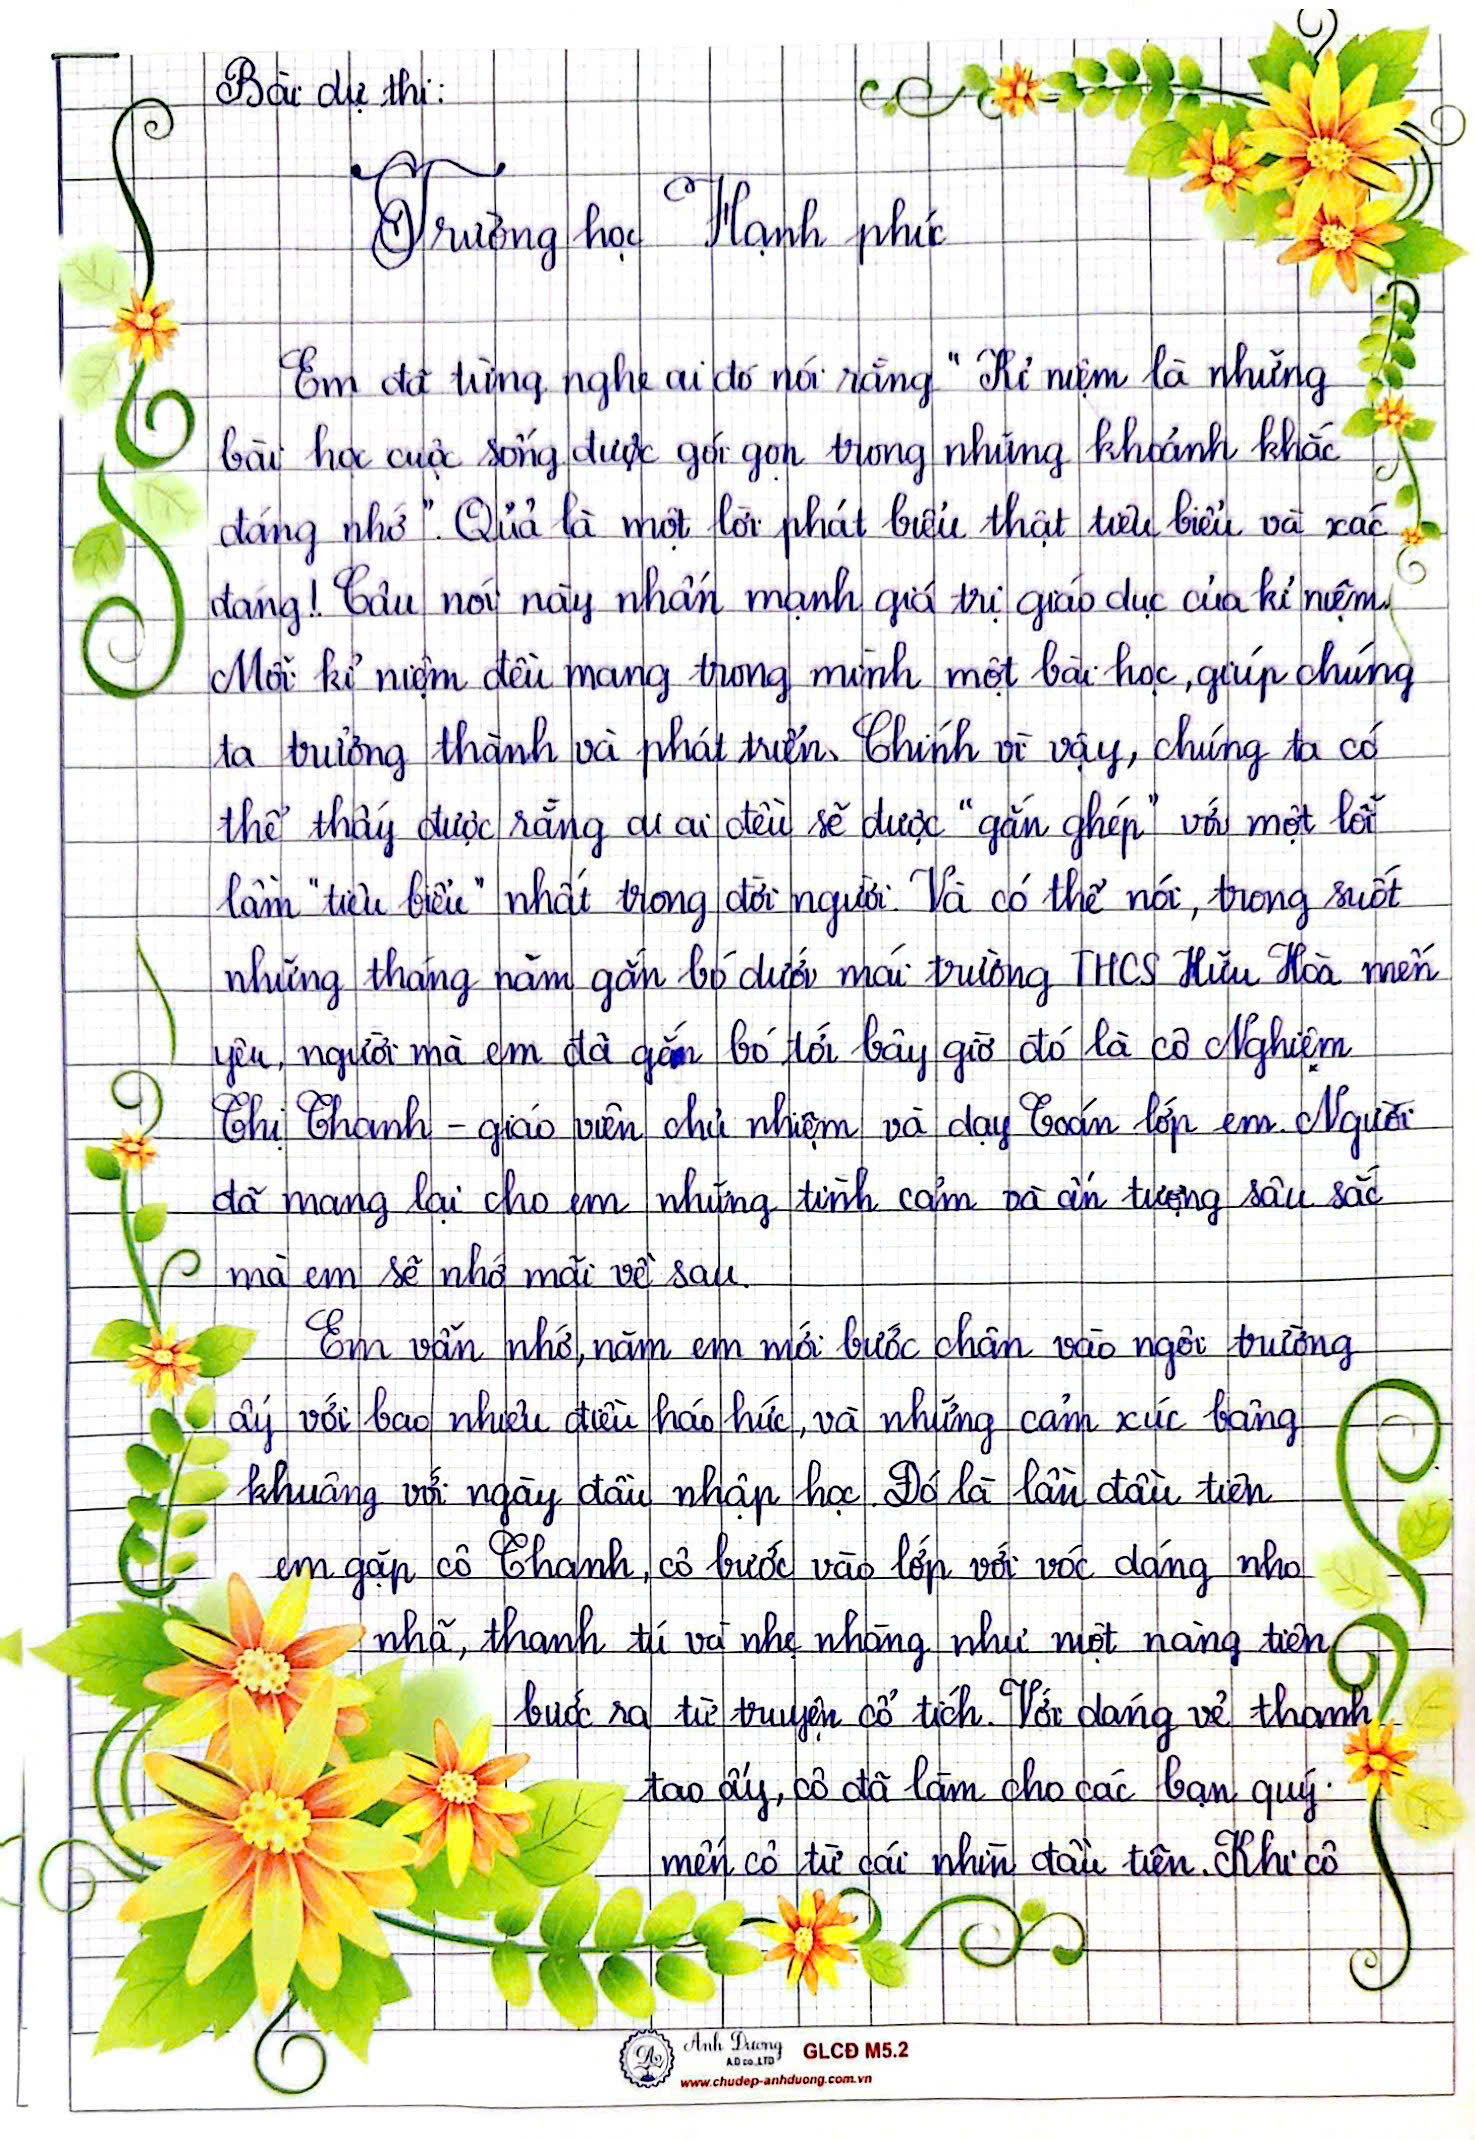 Bài dự thi:
Trường học Hạnh phúc
Em đã từng nghe ai đó nói rằng "Kỉ niệm là những
bài học cuộc sống được gói gọn trong những khoảnh khắc
đáng nhớ". Quả là một lời phát biểu thật tiêu biểu và xác
đáng! Câu nói này nhấn mạnh giá trị giáo dục của kỉ niệm.
Mỗi kỉ niệm đều mang trong mình một bài học, giúp chúng
ta trưởng thành và phát triển. Chính vì vậy, chúng ta có
thể thấy được rằng ai ai đều sẽ được "gắn ghép" với một lỗi
lầm "tiêu biểu" nhất trong đời người. Và có thể nói, trong suốt
những tháng năm gắn bó dưới mái trường THCS Hữu Hoà mến
yêu, người mà em đã gắn bó tới bây giờ đó là cô Nghiêm
Thị Thanh - giáo viên chủ nhiệm và dạy Toán lớp em. Người
đã mang lại cho em những tình cảm và ấn tượng sâu sắc
mà em sẽ nhớ mãi về sau.
Em vẫn nhớ, năm em mới bước chân vào ngôi trường
ấy với bao nhiêu điều háo hức, và những cảm xúc bâng
khuâng với ngày đầu nhập học. Đó là lần đầu tiên
em gặp cô Thanh, cô bước vào lớp với vóc dáng nho
nhã, thanh tú và nhẹ nhàng như một nàng tiên
bước ra từ truyện cổ tích. Với dáng vẻ thanh
tao ấy, cô đã làm cho các bạn quý
mến cô từ cái nhìn đầu tiên. Khi cô
Anh Dương GLCĐ M5.2
A.D co.,LTD
www.chudep-anhduong.com.vn